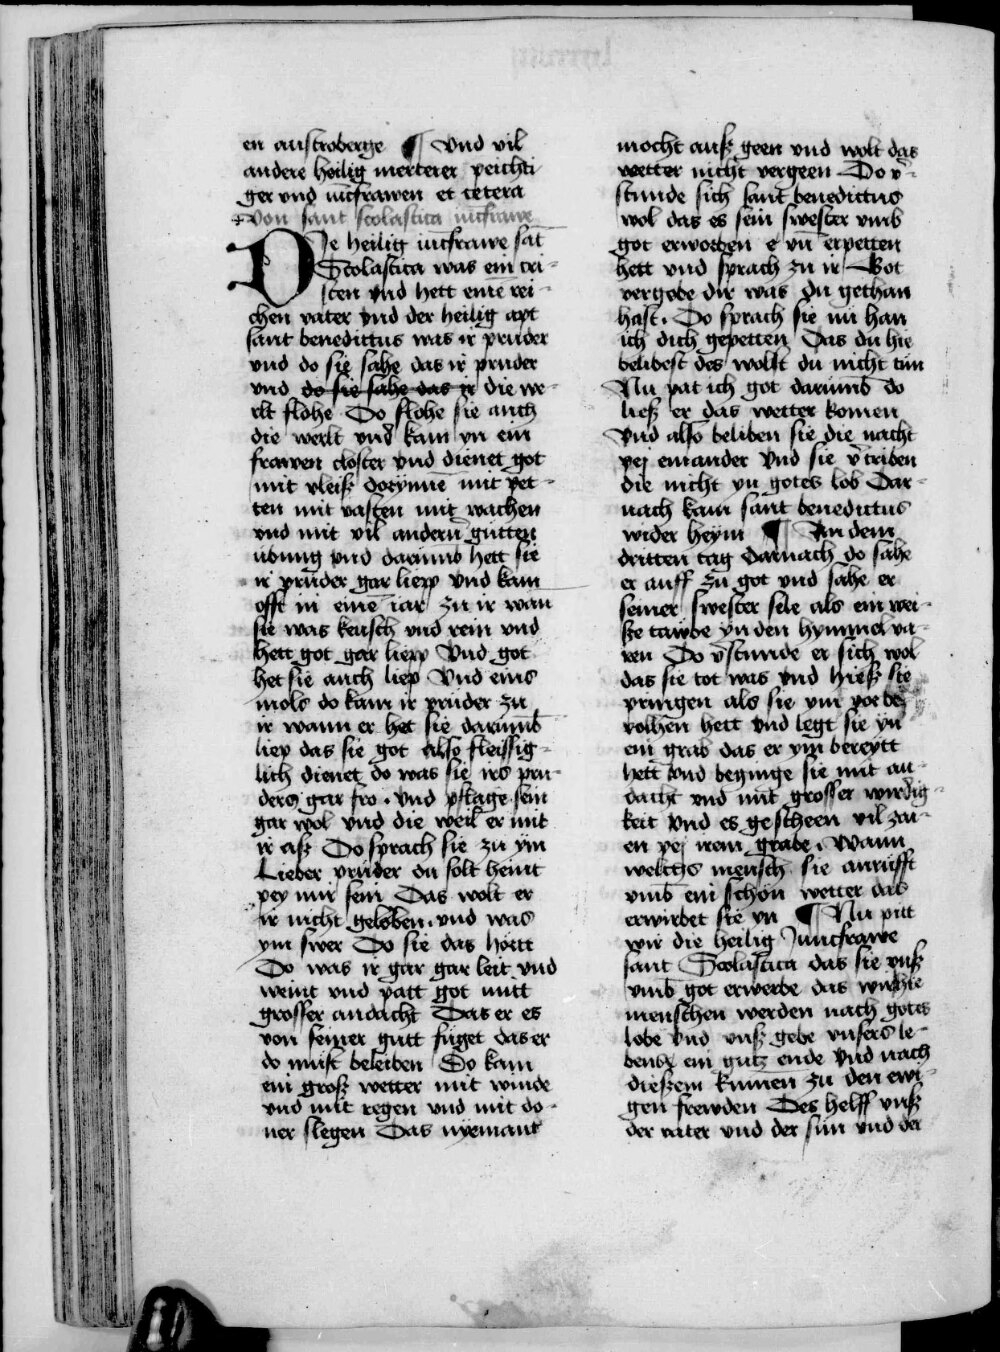 en austroberge ¶ Vnd vil
andere heilig merterer peichti
ger vnd iūcfrawen et cetera
Von sant scolastica iūcfrawe
Die heilig iūcfrawe sāt
Scolastica was ein cri-
sten vnd hett eine rei-
chen vater vnd der heilig apt
sant benedictus was ir pruder
vnd do sie sahe das ir pruder
vnd do sie sahe das ir die we-
rlt flohe Do flohe sie auch
die werlt vnd kam yn ein
frawen closter vnd dienet got
mit vleiß dorynne mit pet-
ten mit vasten mit wachen
vnd mit vil andern gutten
ubung vnd darumb hett sie
ir pruder gar liepp Vnd kam
offt in eine iar zu ir wan
sie was keusch vnd rein vnd
hett got gar liepp Vnd got
het sie auch liep Vnd eins
mols do kam ir pruder zu
ir wann er het sie darumb
liep das sie got also fleissig-
lich dienet do was sie irs pru-
ders gar fro. vnd pflage sein
gar wol vnd die weil er mit
ir aß Do sprach sie zu ym
Lieber pruder du solt heint
pey mir sein Das wolt er
ir nicht geloben. vnd was
ym swer Do sie das hortt
Do was ir gar gar leit vnd
weint vnd patt got mitt
grosser andacht Das er es
von seiner gutt fuget das er
do must beleiben Do kam
ein groß wetter mit winde
vnd mit regen vnd mit do-
ner slegen Das nyemant
mocht auß geen vnd wolt das
wetter nicht vergeen Do v̄-
stunde sich sant benedictus
wol das es sein swester vmb
got erworben e vn̄ erpetten
hett vnd sprach zu ir Got
vergebe dir was du gethan
hast. Do sprach sie nu han
ich dich gepetten Das du hie
belibest des wolst du nicht tun
Nu pat ich got darumb do
ließ er das wetter komen
Vnd also beliben sie die nacht
pej einander Vnd sie v̄triben
die nicht yn gotes lob Dar-
nach kam sant benedictus
wider heym ¶ An dem
dritten tag darnach do sahe
er auff zu got vnd sahe er
seiner swester sele als ein wei-
ße tawbe yn den hymmel va-
ren Do v̄stunde er sich wol
das sie tot was vnd hieß sie
pringen als sie ym vor be-
volhen hett vnd legt sie yn
ein grab das er ym bereytt
hett vnd beginge sie mit an-
dacht vnd mit grosser wirdig-
keit Vnd es gescheen vil zai-
en pej irem grabe. Wann
welches mensch sie anrufft
vmb ein schon wetter das
erwirbet sie yn ¶ Nu pitt
wir die heilig Junckfrawe
sant Scolastica das sie vnß
vmb got erwerbe das
menschen werden nach gotes
lobe Vnd vnß gebe vnsers le-
bens ein gutz ende Vnd nach
dießem kumen zu den ewi-
gen frewden Des helff vnß
der vater vnd der sun vnd der